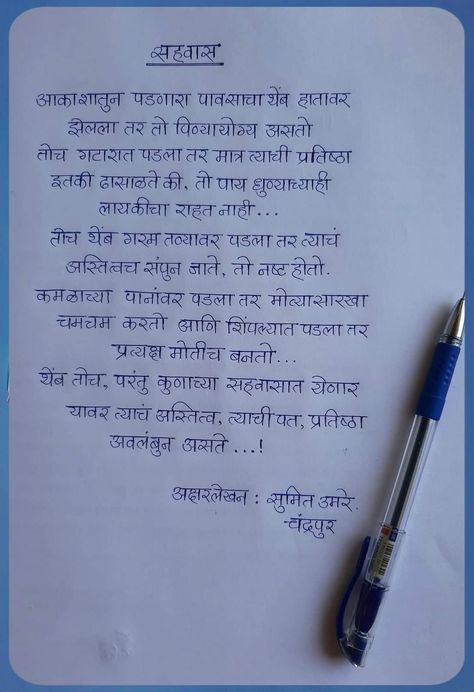 सहवास
आकाशातुन पडणारा पावसाचा थेंब हातावर
झेलला तर तो पिण्यायोग्य असतो
तोच गटारात पडला तर मात्र त्याची प्रतिष्ठा
इतकी ढासाळते की, तो पाय धुण्याच्याही
लायकीचा राहत नाही...
तोच थेंब गरम तव्यावर पडला तर त्याचं
अस्तित्वच संपुन जाते, तो नष्ट होतो.
कमळाच्या पानांवर पडला तर मोत्यासारखा
चमचम करतो आणि शिंपल्यात पडला तर
प्रत्यक्ष मोतीच बनतो...
थेंब तोच, परंतु कुणाच्या सहवासात येणार
यावर त्याचं अस्तित्व, त्याची पत, प्रतिष्ठा
अवलंबुन असते...!
अक्षरलेखन : सुमित उमरे.
-चंद्रपुर